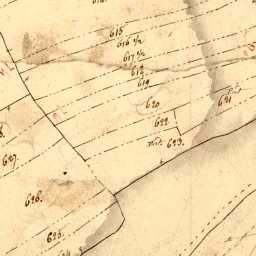 615
616 1/2
617 1/2
618
619
620
621
622
623.
627.
626.
625.